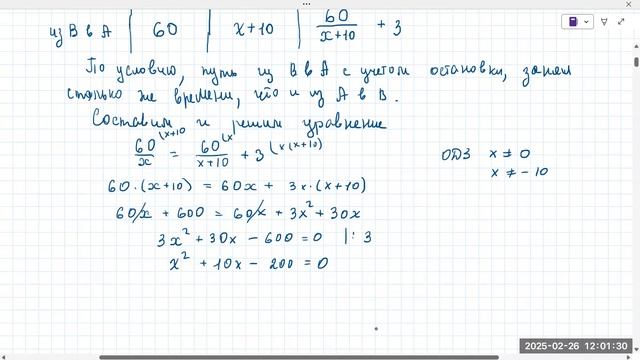 из B в A | 60 | x+10 | 60/(x+10) + 3
По условию, путь из B в A с учетом остановки, занял
столько же времени, что и из A в B.
Составим и решим уравнение
60/x ^(x+10 = 60/(x+10) ^(x + 3 ^(x(x+10)
ОДЗ x ≠ 0
x ≠ - 10
60·(x+10) = 60x + 3x·(x+10)
60x + 600 = 60x + 3x² + 30x
3x² + 30x - 600 = 0 |: 3
x² + 10x - 200 = 0
2025-02-26 12:01:30